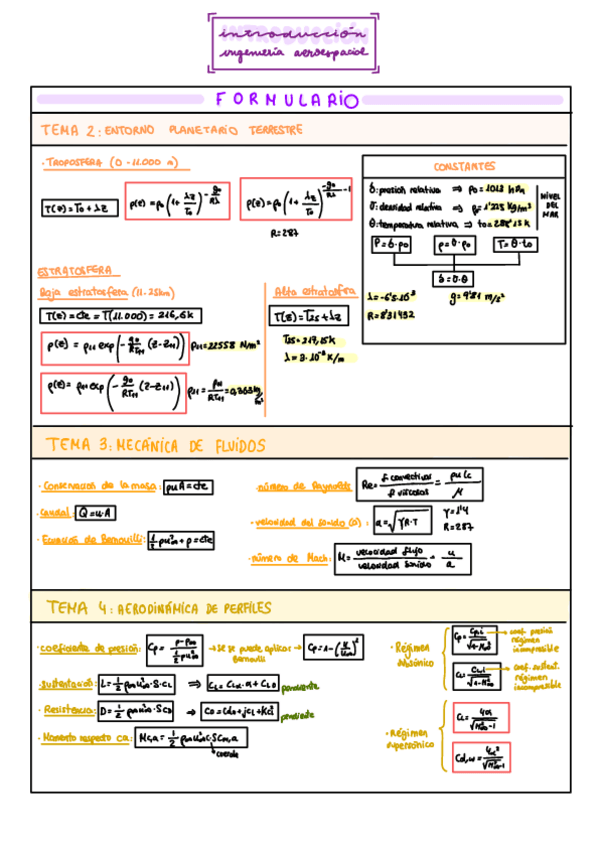 introducción
ingeniería aeroespacial
FORMULARIO
TEMA 2: ENTORNO PLANETARIO TERRESTRE
· TROPOSFERA (0 - 11.000 m)
T(z) = T₀ + λz
R=287
CONSTANTES
δ: presión relativa ⇒ p₀ = 1013 hPa
σ: densidad relativa ⇒ ρ₀ = 1'225 kg/m³
θ: temperatura relativa ⇒ t₀ = 288'15 k
NIVEL DEL MAR
P = δ·p₀
ρ = σ·ρ₀
T = θ·t₀
δ = σ·θ
λ = -6'5·10⁻³
g = 9'81 m/s²
R = 8'31432
ESTRATOSFERA
Baja estratosfera (11-25km)
T(z) = cte = T(11.000) = 216,6k
p(z) = p₁₁ exp(- g₀/RT₁₁ (z-z₁₁))
p₁₁ = 22558 N/m²
ρ(z) = ρ₁₁ exp(- g₀/RT₁₁ (z-z₁₁))
Alta estratosfera
T(z) = T₂₅ + λz
λ = 3·10⁻³ K/m
TEMA 3: MECÁNICA DE FLUIDOS
· Conservación de la masa: ρuA = cte
· Caudal: Q = u·A
· Ecuación de Bernouilli: 1/2 ρu²∞ + p = cte
· número de Reynolds
Re = f. convectivas / f. viscosas = ρuLc / μ
· velocidad del sonido (a): a = √γR·T
γ = 1'4
R = 287
· número de Mach: M = velocidad flujo / velocidad sonido = u / a
TEMA 4: AERODINÁMICA DE PERFILES
· coeficiente de presión: Cp = p-p∞ / 1/2 ρu²∞
→ si se puede aplicar Bernouilli →
Cp = 1 - (u/u∞)²
· sustentación: L = 1/2 ρ∞u²∞·S·CL ⇒
pendiente
· Resistencia: D = 1/2 ρ∞u²∞·S·CD ⇒
pendiente
· Momento respecto ca:
cuerda
· Régimen subsónico
coef. presión régimen incompresible
coef. sustent. régimen incompresible
· Régimen supersónico
CL = 4α / √M²∞-1
Cd,w = 4α² / √M²∞-1